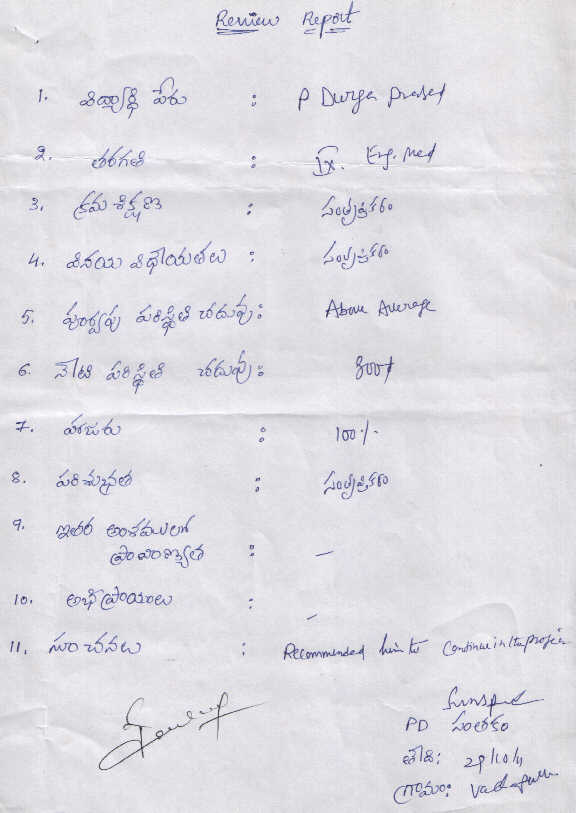 Review Report
1. విద్యార్థి పేరు : P Durga prasad
2. తరగతి : IX. Eng. Med
3. క్రమశిక్షణ : సంతృప్తికరం
4. వినయ విధేయతలు : సంతృప్తికరం
5. పూర్వపు పరిస్థితి చదువు : Above Average
6. నేటి పరిస్థితి చదువు : good
7. హాజరు : 100%
8. పరిశుభ్రత : సంతృప్తికరం
9. ఇతర అంశములలో
ప్రావీణ్యత : —
10. అభిప్రాయాలు : —
11. సూచనలు : Recommended him to continue in the project
PD సంతకం
తేది: 29/10/11
గ్రామం: